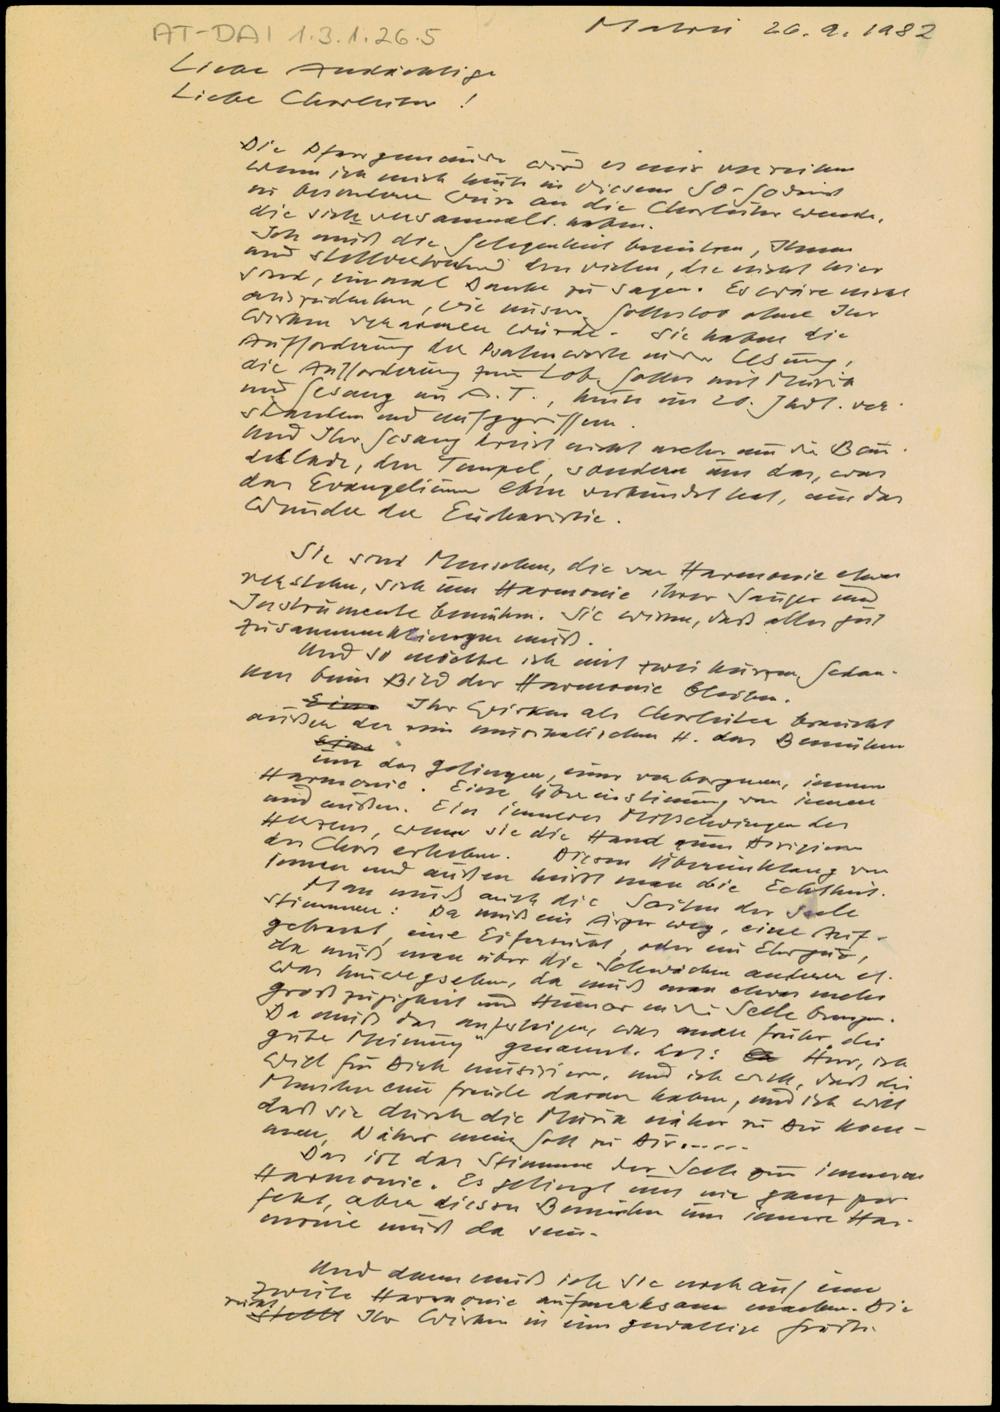 AT-DAI 1.3.1.26.5
Matrei 26.9.1982
Liebe Andächtige
Liebe Chorleiter !
Die Pfarrgemeinde wird es mir verzeihen
wenn ich mich heute in diesem So-Godienst
in besonderer Weise an die Chorleiter wende,
die sich versammelt haben.
Ich muß die Gelegenheit benützen, Ihnen
und stellvertretend den vielen, die nicht hier
sind, einmal Danke zu sagen. Es wäre nicht
auszudenken, wie unser Gotteslob ohne Ihr
Wirken verarmen würde. Sie haben die
Aufforderung der Psalmworte in der Lesung,
die Aufforderung zum Lobe Gottes mit Musik
und Gesang im A.T., heute im 20. Jhdt. ver-
standen und aufgegriffen.
Und Ihr Gesang kreist nicht mehr um die Bun-
deslade, den Tempel, sondern um das, was
das Evangelium eben verkündet hat, um das
Wunder der Eucharistie.
Sie sind Menschen, die von Harmonie etwas
verstehen, sich um Harmonie ihrer Sänger und
Instrumente bemühen. Sie wissen, daß alles gut
zusammenklingen muß.
Und so möchte ich mit zwei kurzen Gedan-
ken beim Bild der Harmonie bleiben.
Ihr Wirken als Chorleiter braucht
außer der rein musikalischen H. das Bemühen
um das Gelingen einer verborgenen, inneren
Harmonie. Eine Übereinstimmung von innen
und außen. Ein inneres Mitschwingen des
Herzens, wenn sie die Hand zum Dirigieren
des Chors erheben. Diesen Übereinklang von
innen und außen heißt man die Echtheit.
Man muß auch die Saiten der Seele
stimmen: Da muß ein Ärger weg, eine Auf-
gebracht, eine Eifersucht, oder ein Ehrgeiz,
da muß man über die Schwächen anderer et-
was hinwegsehen, da muß man etwas mehr
Großzügigkeit und Humor in die Seele bringen.
Da muß das aufsteigen, was man früher „die
gute Meinung" genannt hat: Herr, ich
will für Dich musizieren, und ich will, daß die
Menschen eine Freude daran haben, und ich will
daß sie durch die Musik näher zu Dir kom-
men, Näher mein Gott zu Dir.....
Das ist das Stimmen der Seele zur inneren
Harmonie. Es gelingt uns nie ganz per-
fekt, aber dieses Bemühen um innere Har-
monie muß da sein.
Und dann muß ich Sie noch auf eine
zweite Harmonie aufmerksam machen. Die
rückt Ihr Wirken in eine gewaltige